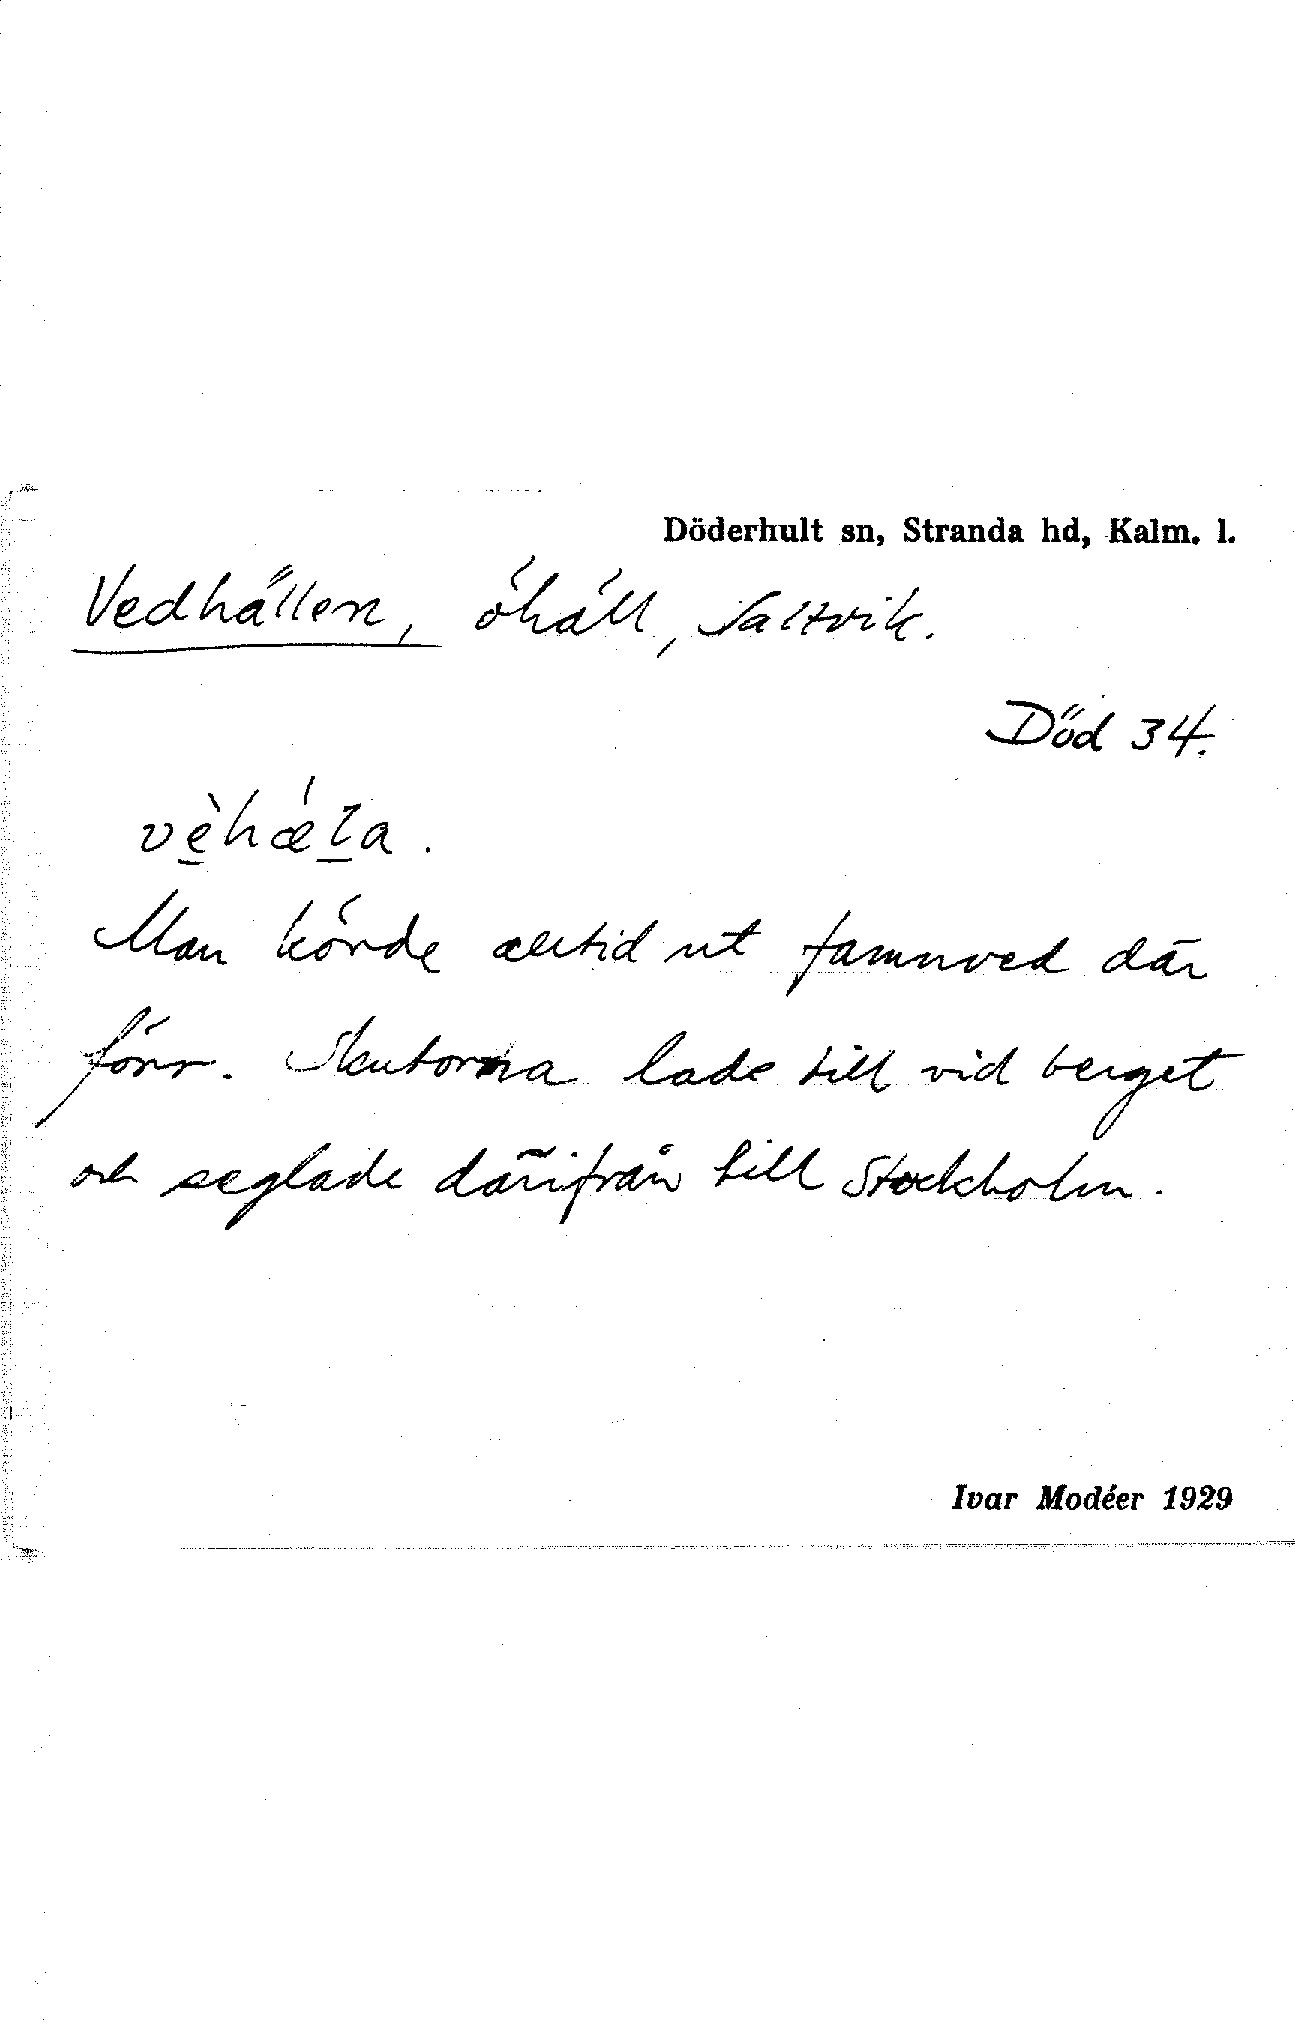 Döderhult sn, Stranda hd, Kalm. l.
Vedhällen, öhäll, Saltvik.
Död 34.
vè̱hǽḻa.
Man körde alltid ut famnved där
förr. Skutorna lade till vid berget
och seglade därifrån till Stockholm.
Ivar Modéer 1929